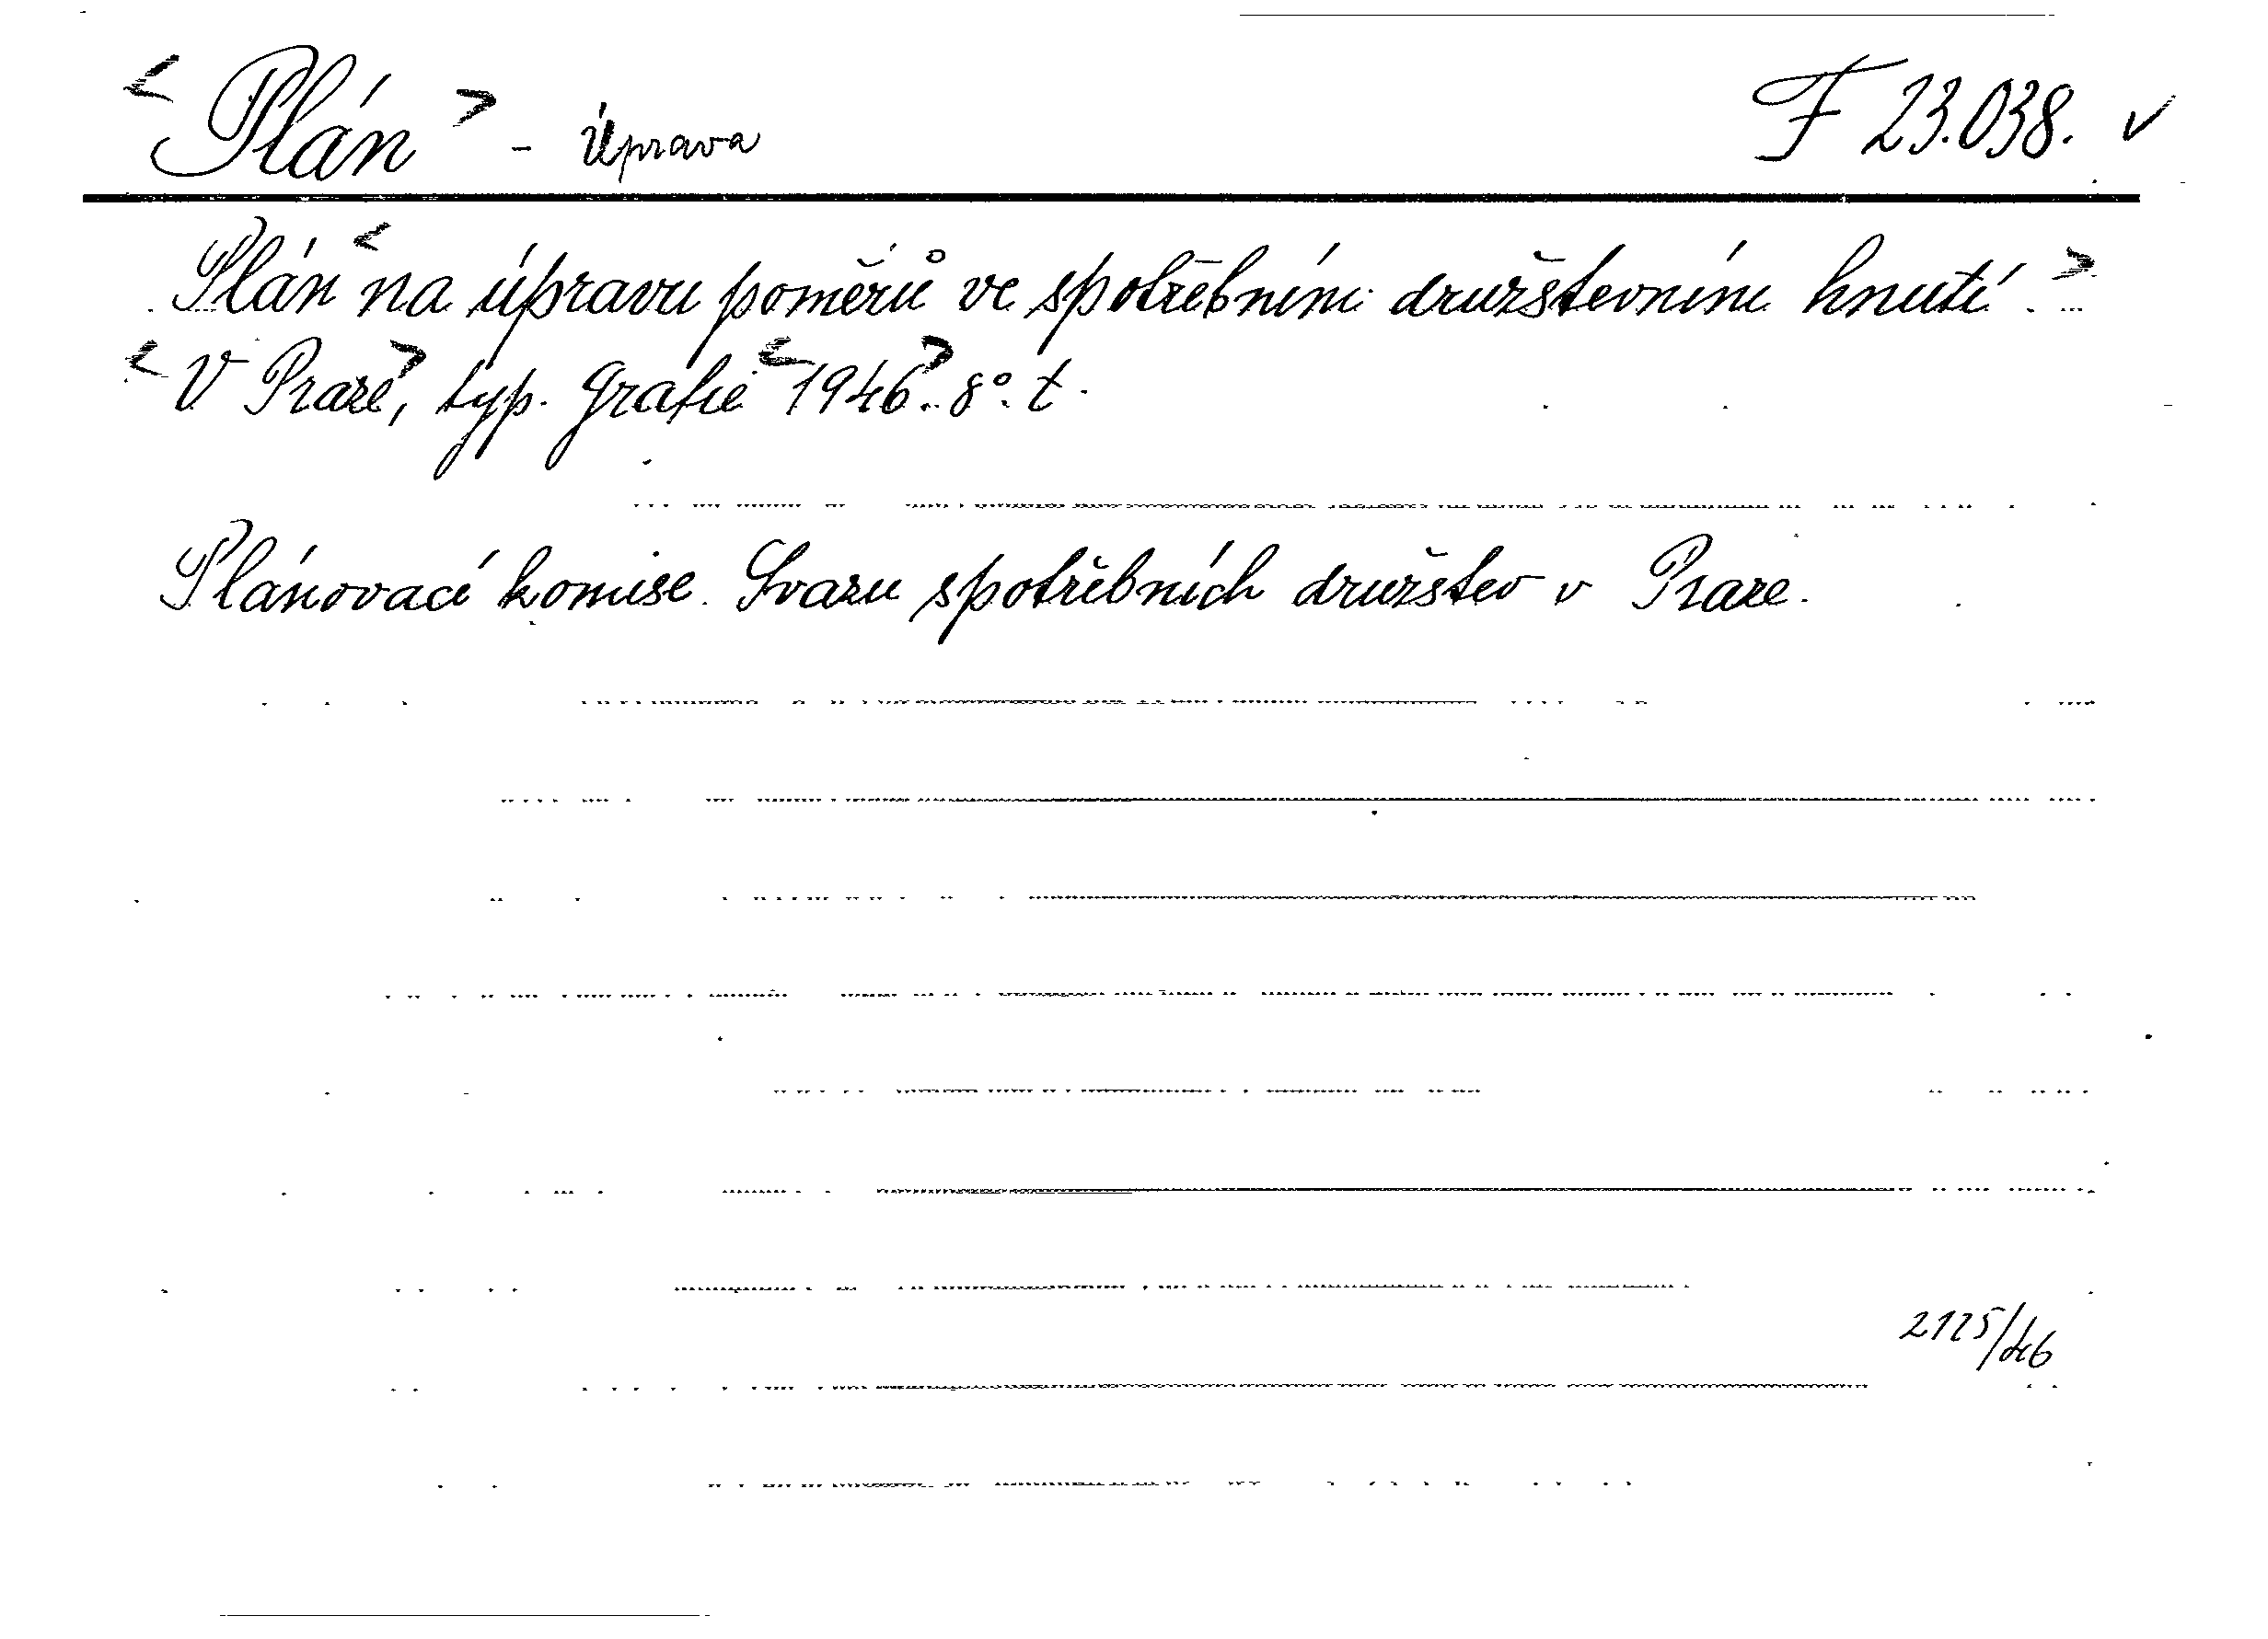 < Plán > - Úprava F 23.038. ✓
Plán < na úpravu poměrů ve spotřebním družstevním hnutí. >
< V Praze >, typ. Grafie < 1946 >. 8°. t.
Plánovací komise Svazu spotřebních družstev v Praze.
2125/46